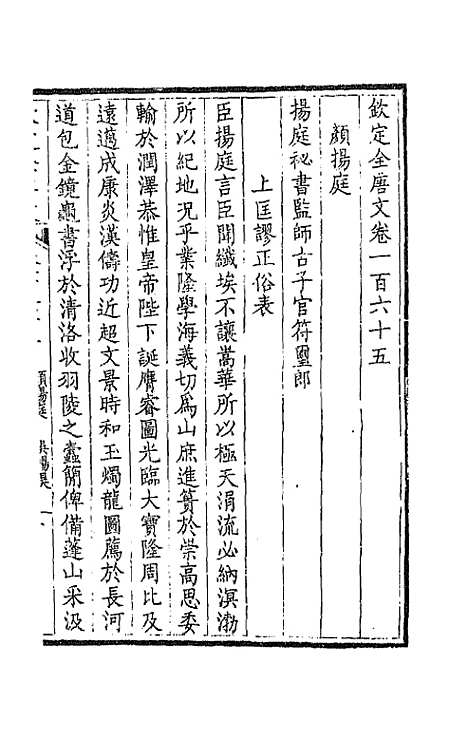 欽定全唐文卷一百六十五
顏揚庭
揚庭祕書監師古子官符璽郎
上匡謬正俗表
臣揚庭言臣聞纖埃不讓嵩華所以極天涓流必納溟渤
所以紀地況乎業隆學海義切為山庶進簣於崇高思委
輸於潤澤恭惟皇帝陛下誕膺睿圖光臨大寶隆周比及
遠邁成康炎漢儔功近超文景時和玉燭龍圖薦於長河
道包金鏡龜書浮於清洛收羽陵之蠹簡俾備蓬山采汲